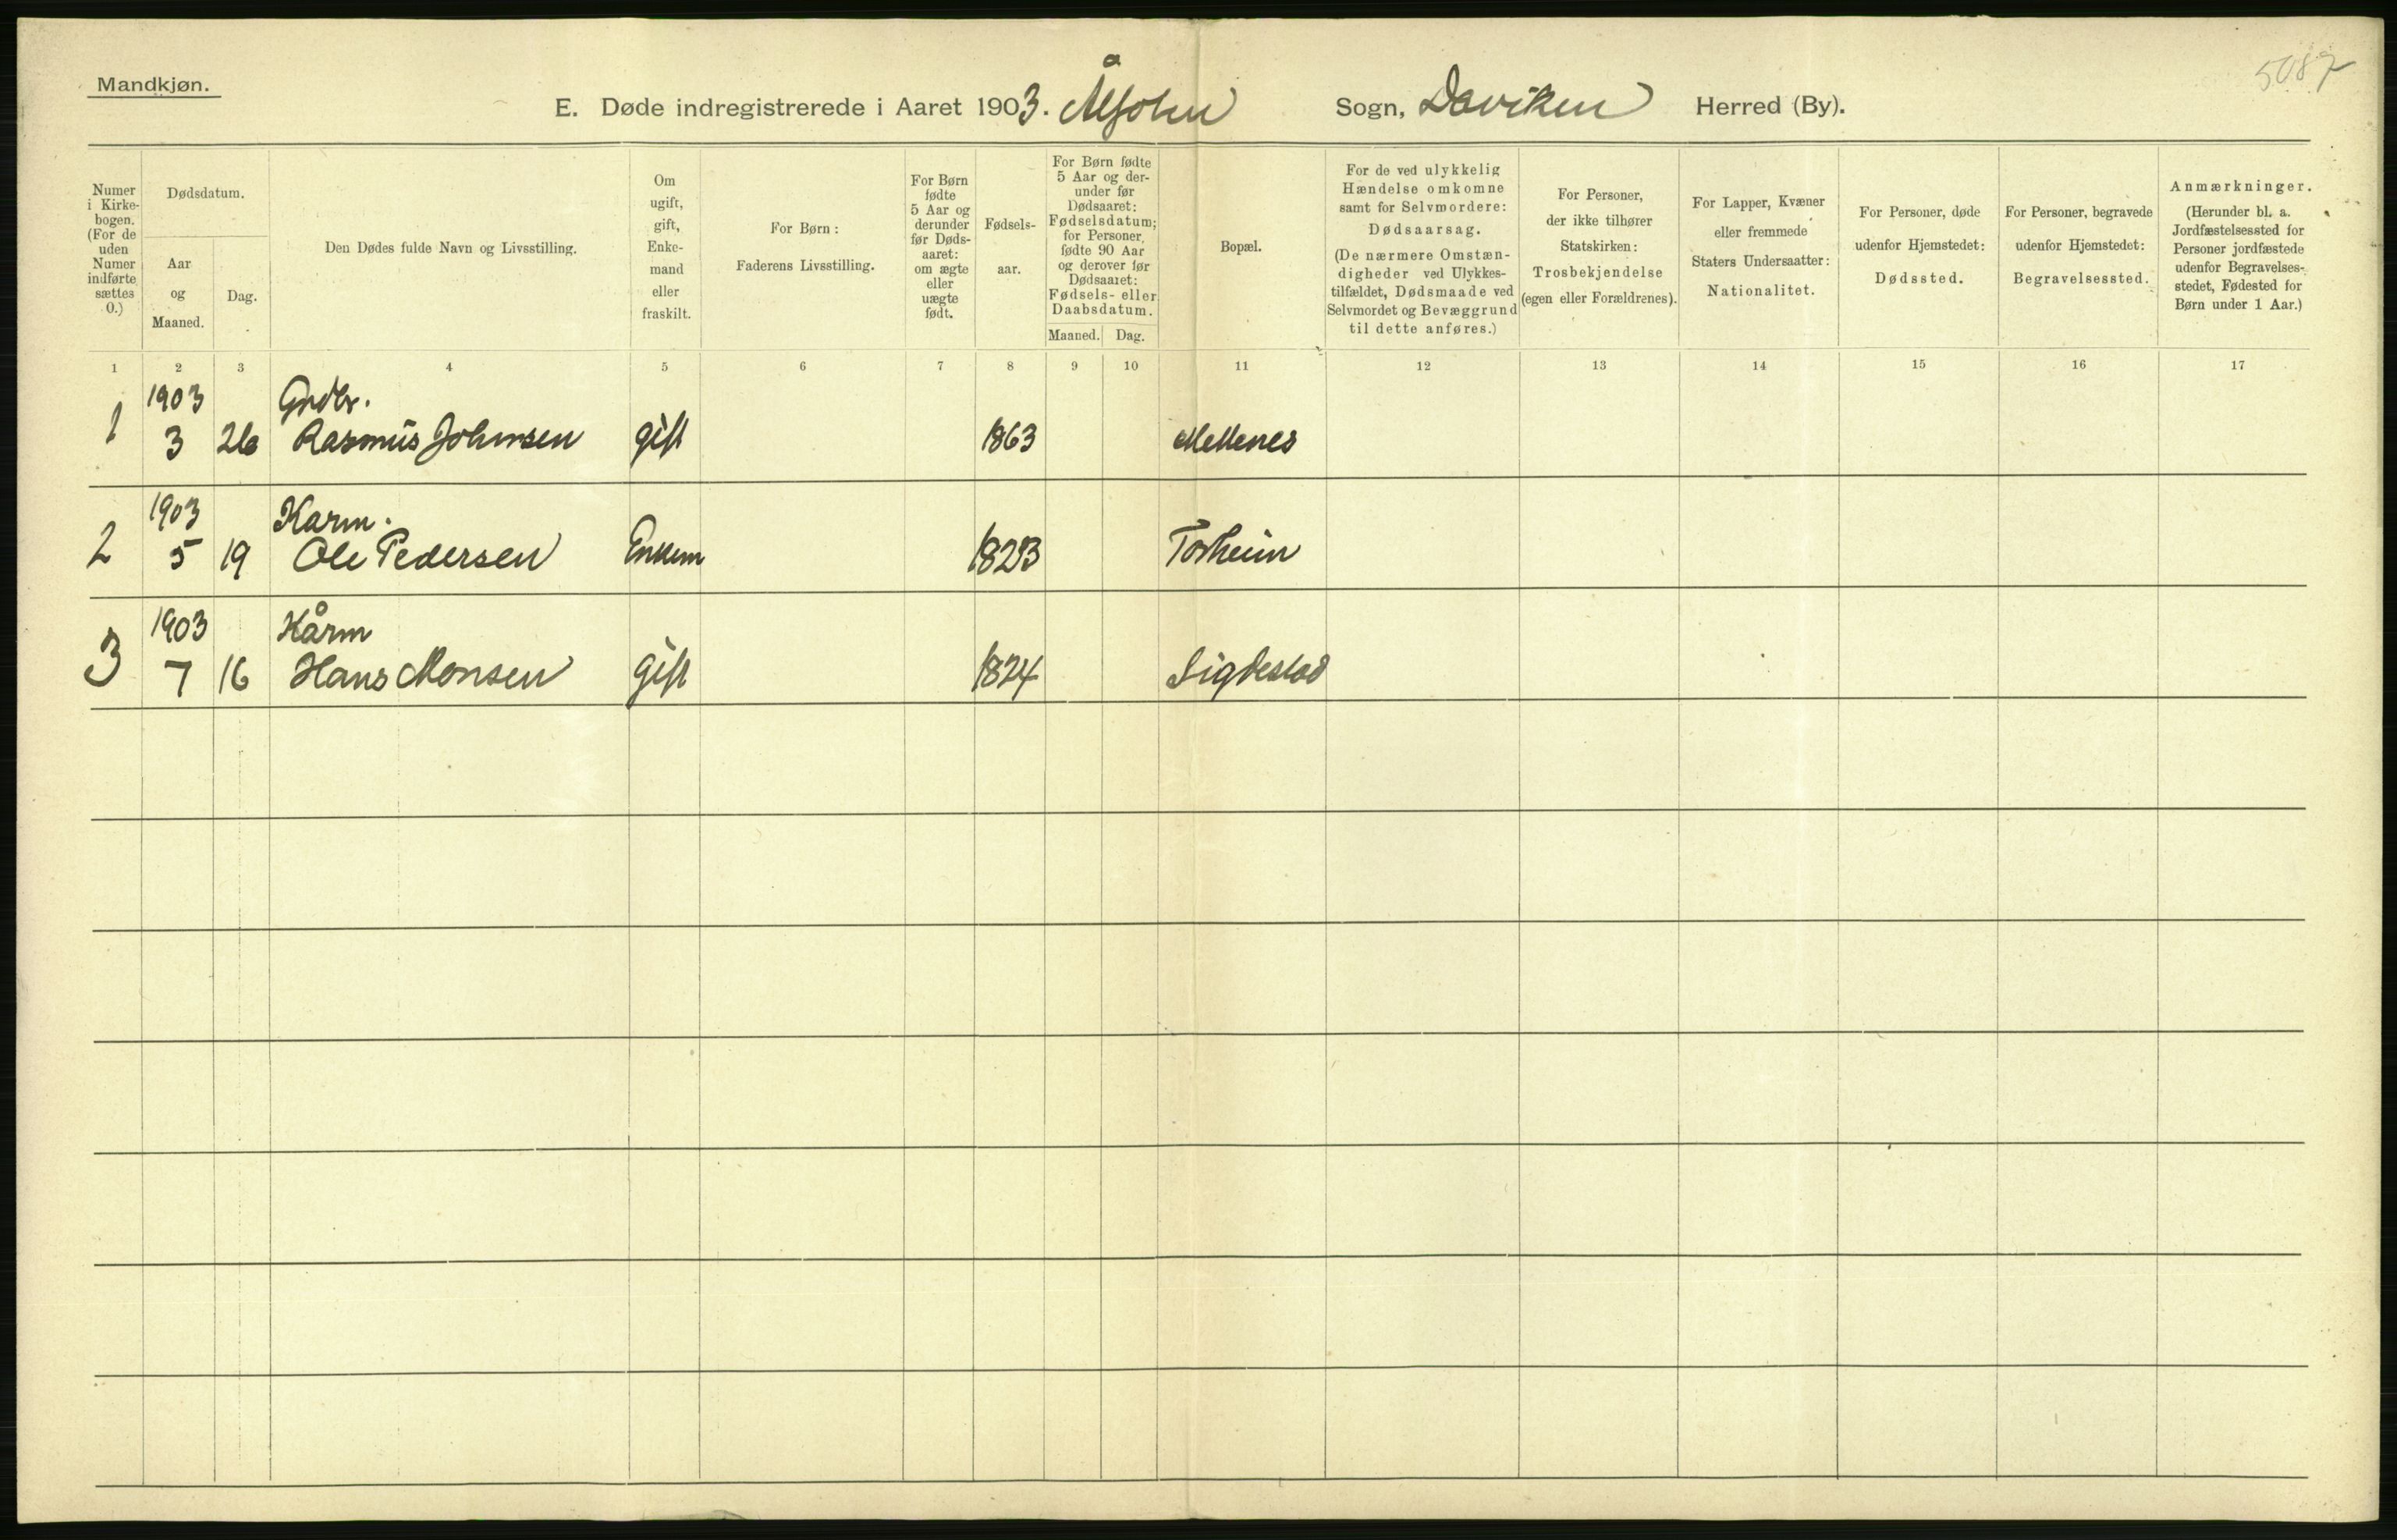 Mandkjøn.
5087
E. Døde indregistrerede i Aaret 1903. Ålfoten Sogn, Daviken Herred (By).
Numer i Kirke-bogen. (For de uden Numer indførte sættes 0.)
Dødsdatum.
Aar og Maaned.
Dag.
Den Dødes fulde Navn og Livsstilling.
Om ugift, gift, Enke-mand eller fraskilt.
For Børn: Faderens Livsstilling.
For Børn fødte 5 Aar og derunder før Døds-aaret: om ægte eller uægte født.
Fødsels-aar.
For Børn fødte 5 Aar og der-under før Dødsaaret: Fødselsdatum; for Personer, fødte 90 Aar og derover før Dødsaaret: Fødsels- eller Daabsdatum.
Maaned. Dag.
Bopæl.
For de ved ulykkelig Hændelse omkomne samt for Selvmordere: Dødsaarsag. (De nærmere Omstæn-digheder ved Ulykkes-tilfældet, Dødsmaade ved Selvmordet og Bevæggrund til dette anføres.)
For Personer, der ikke tilhører Statskirken: Trosbekjendelse (egen eller Forældrenes).
For Lapper, Kvæner eller fremmede Staters Undersaatter: Nationalitet.
For Personer, døde udenfor Hjemstedet: Dødssted.
For Personer, begravede udenfor Hjemstedet: Begravelsessted.
Anmærkninger. (Herunder bl. a. Jordfæstelsessted for Personer jordfæstede udenfor Begravelses-stedet, Fødested for Børn under 1 Aar.)
1 2 3 4 5 6 7 8 9 10 11 12 13 14 15 16 17
1903 Grdbr.
1 3 26 Rasmus Johnsen gift 1863
1903 Karm.
2 5 19 Ole Pedersen Enkem 1823 Torheim
1903 Kårm
3 7 16 Hans Monsen gift 1824 Sigdestad